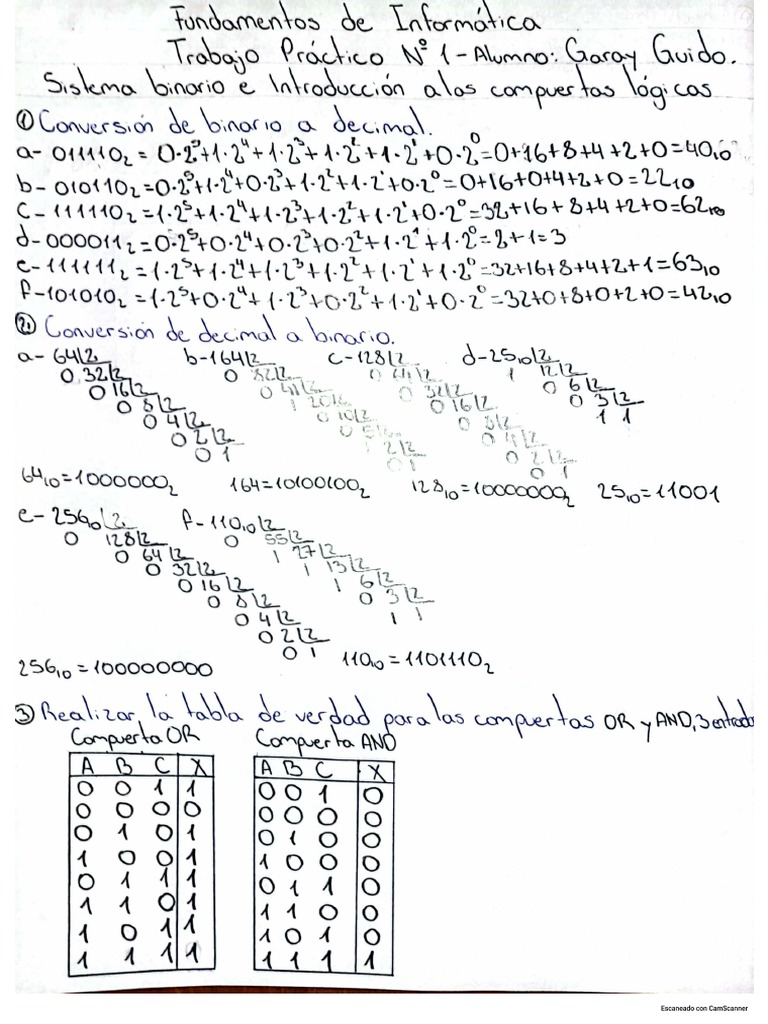 Fundamentos de Informática
Trabajo Práctico N° 1 - Alumno: Garay Guido.
Sistema binario e Introducción a las compuertas lógicas
① Conversión de binario a decimal.
a- 011110₂ = 0·2⁵+1·2⁴+1·2³+1·2²+1·2¹+0·2⁰=0+16+8+4+2+0=40₁₀
b- 010110₂=0·2⁵+1·2⁴+0·2³+1·2²+1·2¹+0·2⁰=0+16+0+4+2+0=22₁₀
c- 111110₂=1·2⁵+1·2⁴+1·2³+1·2²+1·2¹+0·2⁰=32+16+8+4+2+0=62₁₀
d- 000011₂=0·2⁵+0·2⁴+0·2³+0·2²+1·2¹+1·2⁰=2+1=3
e- 111111₂=1·2⁵+1·2⁴+1·2³+1·2²+1·2¹+1·2⁰=32+16+8+4+2+1=63₁₀
f- 101010₂=1·2⁵+0·2⁴+1·2³+0·2²+1·2¹+0·2⁰=32+0+8+0+2+0=42₁₀
② Conversión de decimal a binario.
a- 64|2 b- 164|2 c- 128|2 d- 25₁₀|2
0 32|2 0 82|2 0 64|2 1 12|2
0 16|2 0 41|2 0 32|2 0 6|2
0 8|2 1 20|2 0 16|2 0 3|2
0 4|2 0 10|2 0 8|2 1 1
0 2|2 0 5|2 0 4|2
0 1 1 2|2 0 2|2
0 1 0 1
64₁₀=1000000₂ 164=10100100₂ 128₁₀=10000000₂ 25₁₀=11001
e- 256₁₀|2 f- 110₁₀|2
0 128|2 0 55|2
0 64|2 1 27|2
0 32|2 1 13|2
0 16|2 1 6|2
0 8|2 0 3|2
0 4|2 1 1
0 2|2
0 1
256₁₀=100000000 110₁₀=1101110₂
③ Realizar la tabla de verdad para las compuertas OR y AND, 3 entrada
Compuerta OR Compuerta AND
A B C X A B C X
0 0 1 1 0 0 1 0
0 0 0 0 0 0 0 0
0 1 0 1 0 1 0 0
1 0 0 1 1 0 0 0
0 1 1 1 0 1 1 0
1 1 0 1 1 1 0 0
1 0 1 1 1 0 1 0
1 1 1 1 1 1 1 1
Escaneado con CamScanner